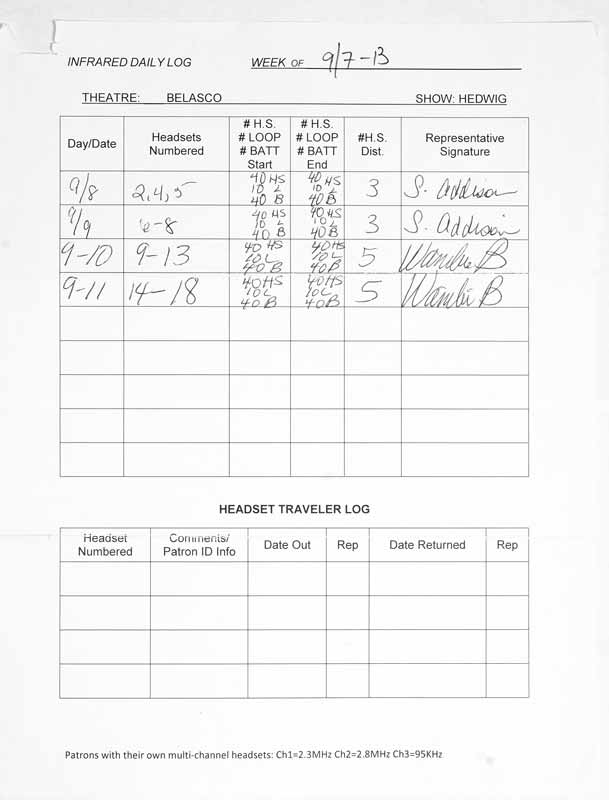 INFRARED DAILY LOG WEEK OF 9/7-13
THEATRE: BELASCO SHOW: HEDWIG
Day/Date Headsets Numbered # H.S. # LOOP # BATT Start # H.S. # LOOP # BATT End #H.S. Dist. Representative Signature
9/8 2,4,5 40 HS 10 L 40 B 40 HS 10 L 40 B 3 S. Addison
9/9 6-8 40 HS 10 L 40 B 40 HS 10 L 40 B 3 S. Addison
9-10 9-13 40HS 10L 40B 40HS 10L 40B 5 B
9-11 14-18 40HS 10L 40B 40HS 10L 40B 5 B
HEADSET TRAVELER LOG
Headset Numbered Comments/ Patron ID Info Date Out Rep Date Returned Rep
Patrons with their own multi-channel headsets: Ch1=2.3MHz Ch2=2.8MHz Ch3=95KHz